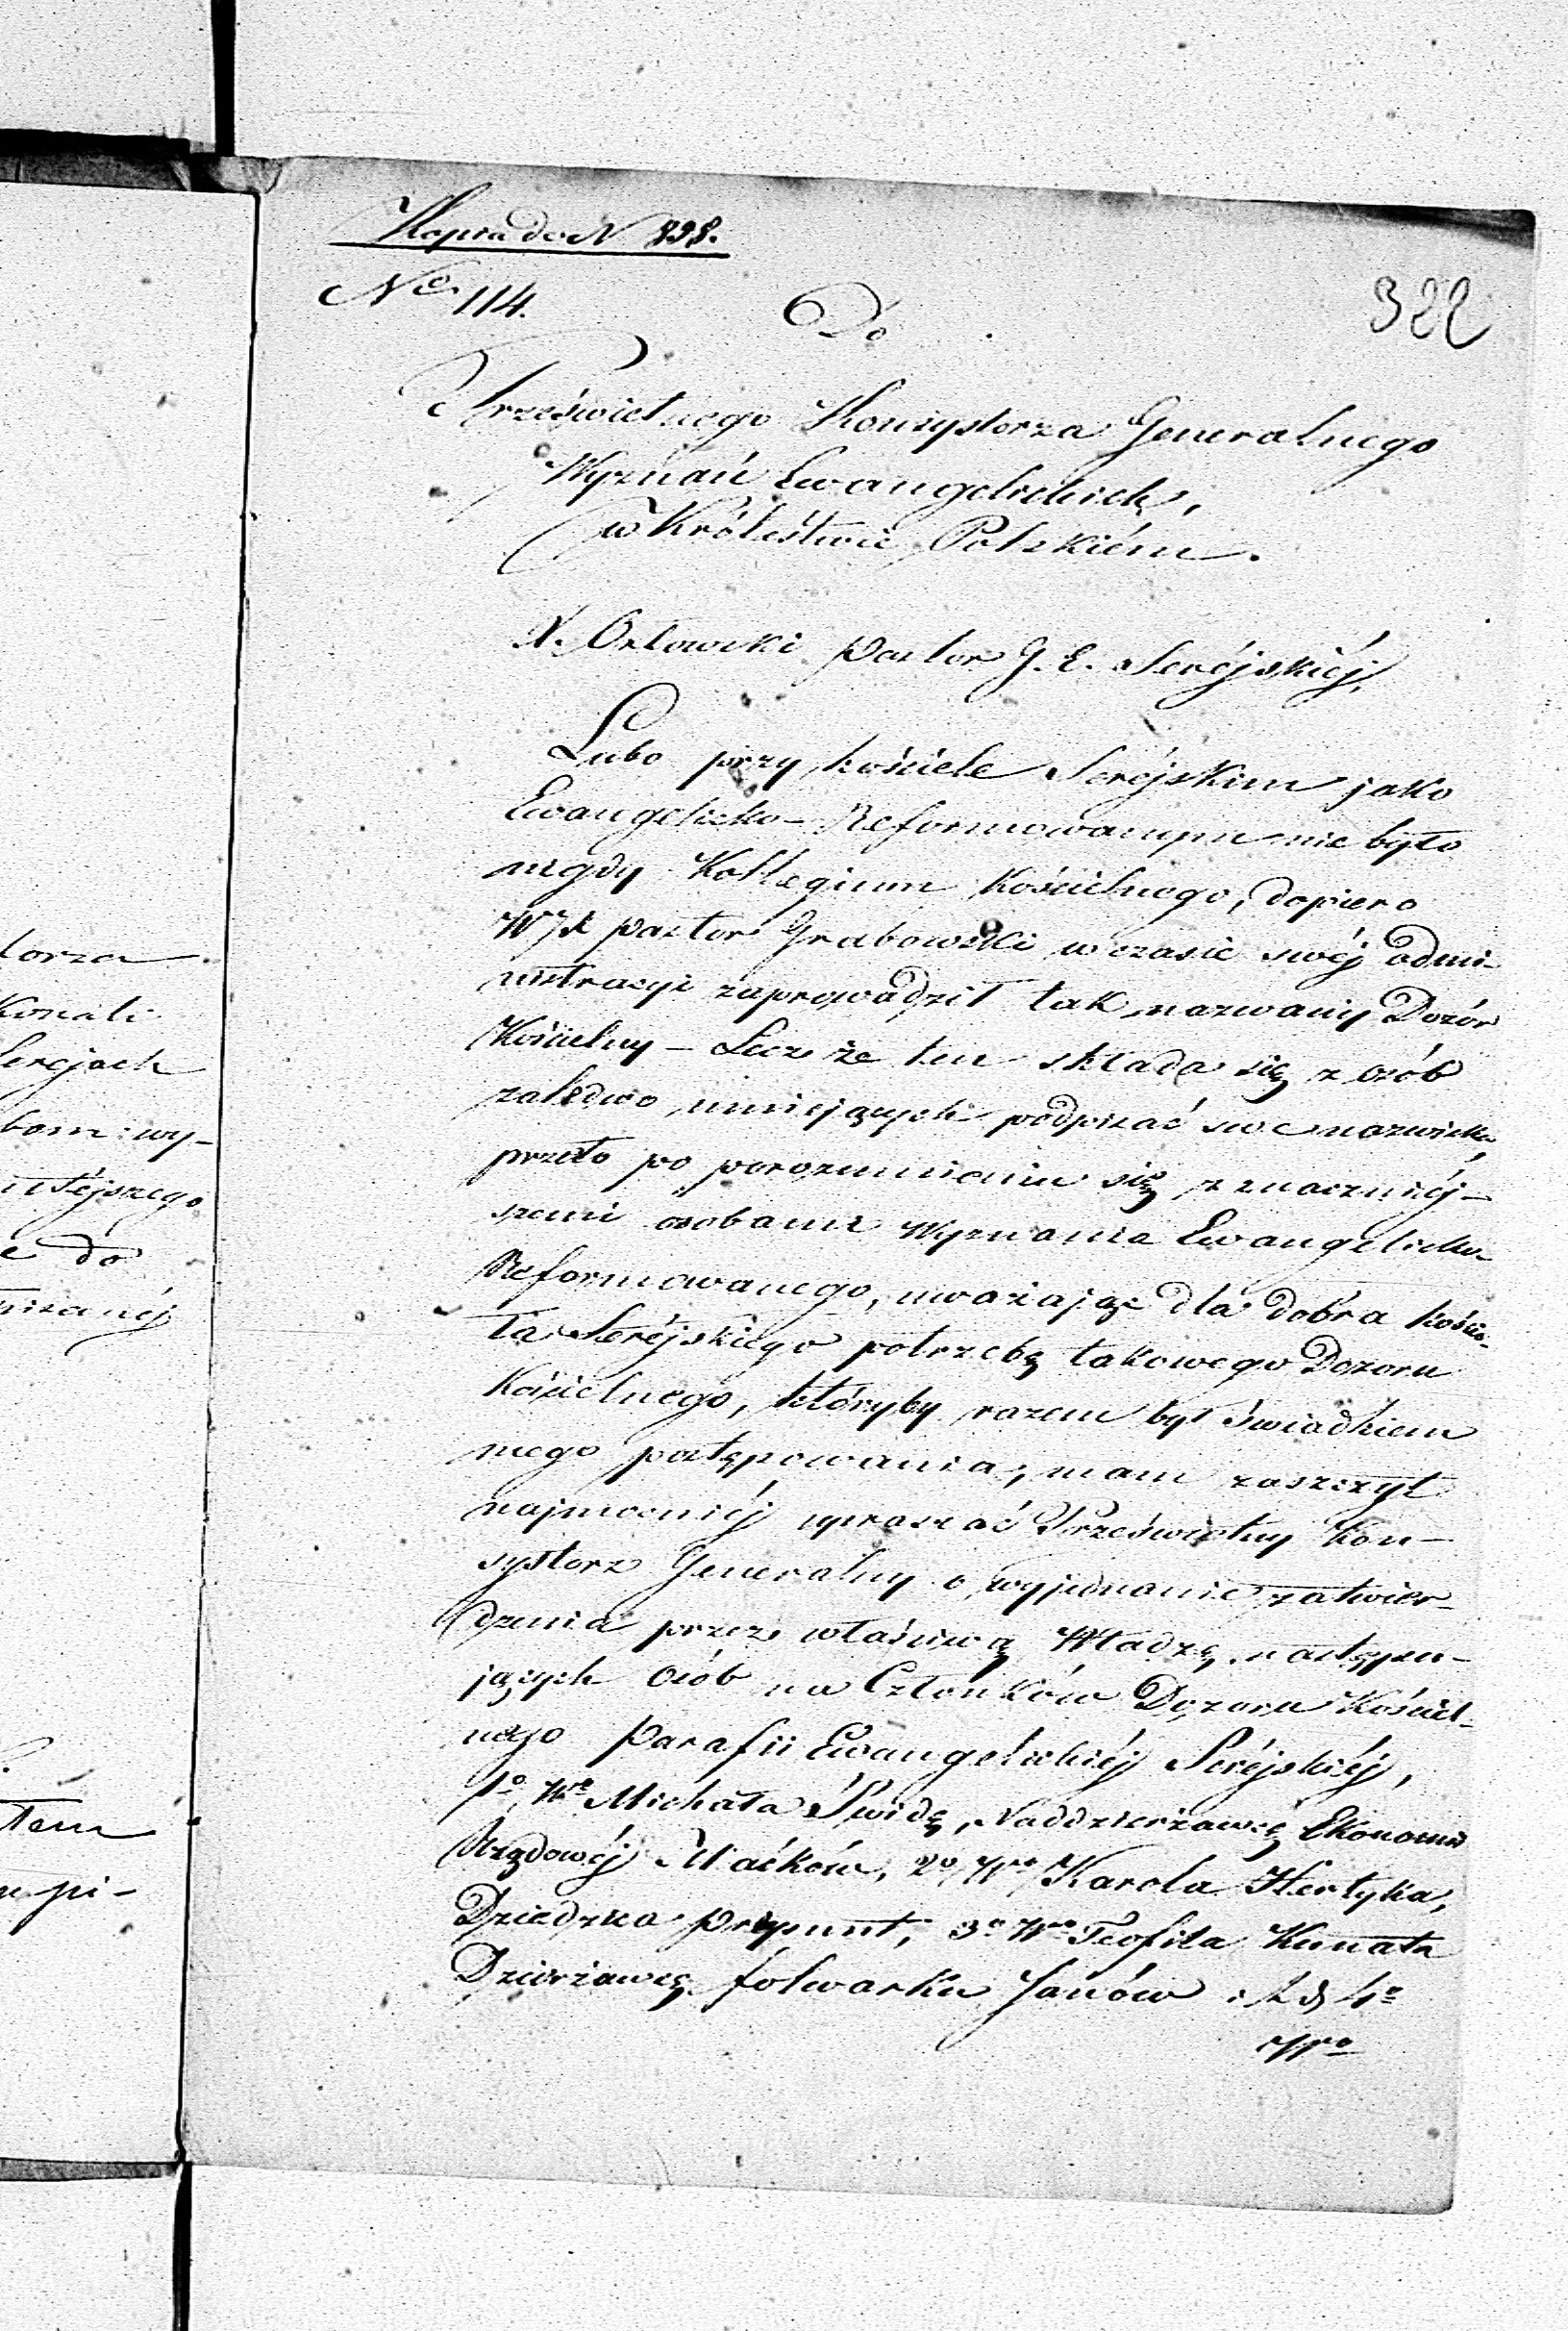 Kopia do N 898.
No 114.
322
Do
Prześwietnego Konsystorza Generalnego
Wyznań Ewangelickich,
w Króleśtwie Polskiém.
X. Orłowski Pastor G. E. Seréjskiéj,
Lubo przy kościele Seréjskim jako
Ewangelicko-Reformowanym nie było
nigdy Kollegium Kościelnego, dopiero
WJX Pastor Grabowski w czasie swéj admi-
nistracyi zaprowadził tak nazwany Dozór
Kościelny – Lecz że ten składa się z osób
zaledwo umiejących podpisać swe nazwiska,
przeto po porozumieniu się z znaczniéj-
szemi osobami Wyznania Ewangelicko
Reformowanego, uważając dla dobra kościo-
ła Seréjskiego potrzebę takowego Dozoru
Kościelnego, któryby razem był świadkiem
mego postępowania, mam zaszczyt
najmocniéj upraszać Prześwietny Kon-
systorz Generalny o wyjednanie zatwier-
dzenia przez właściwą Władzę następu-
jących osób na Członków Dozoru Kościel-
nego Parafii Ewangelickiéj Seréjskiéj,
1o Wo Michała Świdę, Naddzierżawcę Ekonomii
Rządowéj Maćków, 2o Wo Karola Hertyka,
Dziedzica Prepunt, 3o Wo Teofila Kunata
Dzierżawcę folwarku Janów i 4o
Wo
torza
Konali
Serejach
bom wy-
utéjszego
e do
pisanéj
tem
u pi-